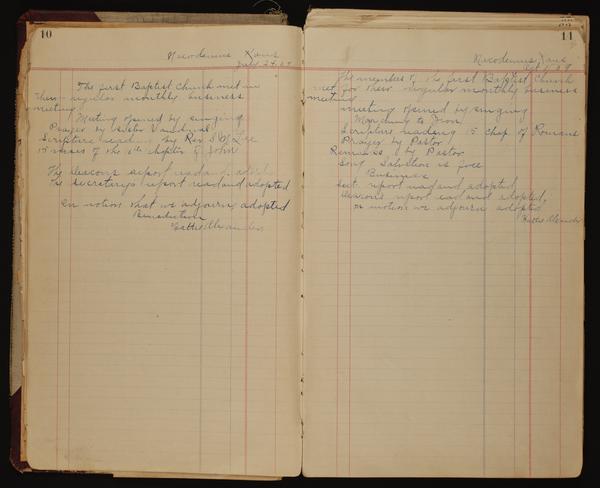 10
Nicodemus Kans
July 24
The first Baptist Church met in
their regular monthly business
meeting
Meeting opened by singing
Prayer by Sister Vanduvall
Scripture reading by Rev S M Lee
15 verses of the 4th chapter of John
The Deacons report read and adopted
The secretarys report read and adopted
On motion that we adjourn adopted
Benediction
Hattie Alexander
11
Nicodemus, Kans
The members of the first Baptist Church
met for their regular monthly business
meeting
meeting opened by singing
Marching to Zion
Scripture reading 15 chap of Romans
Prayer by Pastor
Remarks by Pastor
Song Salvation is free
Business
Sect. report read and adopted
Deacons report read and adopted,
on motion we adjourn adopted
Hattie Alexander